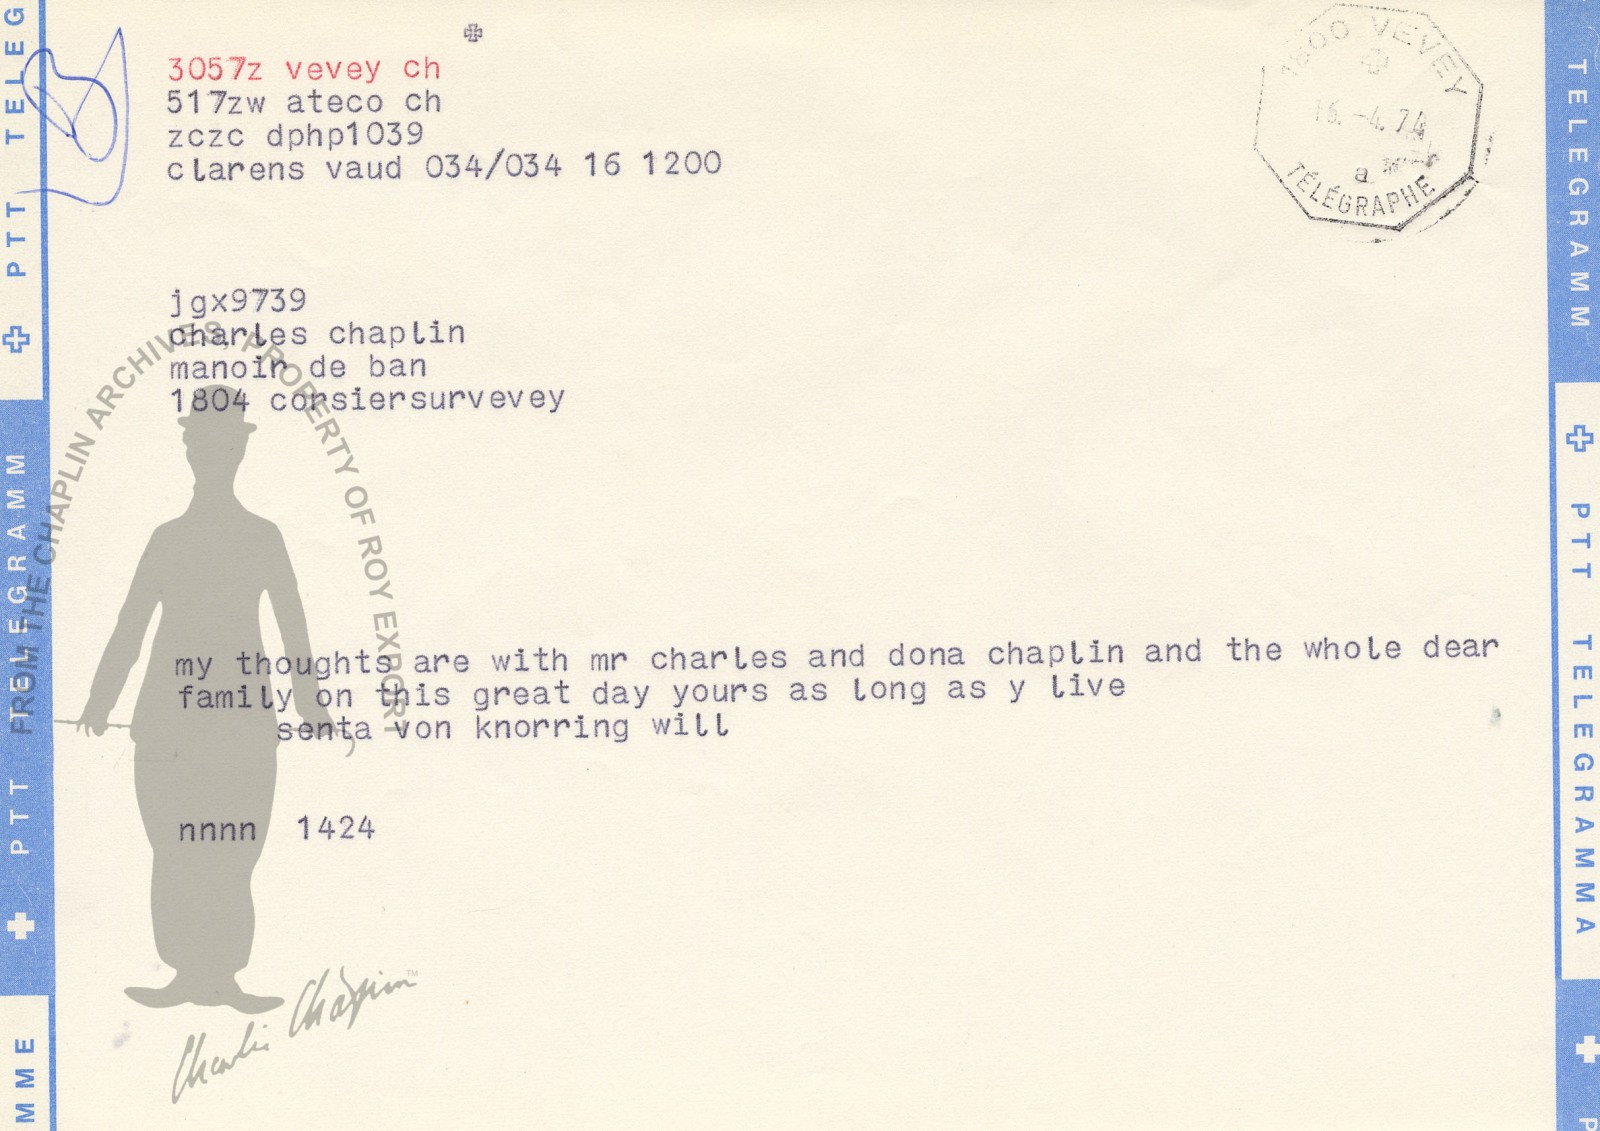 3057z vevey ch
517zw ateco ch
zczc dphp1039
clarens vaud 034/034 16 1200
1800 VEVEY
16.-4.74
a
TÉLÉGRAPHE
jgx9739
charles chaplin
manoir de ban
1804 corsiersurvevey
my thoughts are with mr charles and dona chaplin and the whole dear
family on this great day yours as long as y live
senta von knorring will
nnnn 1424
FROM THE CHAPLIN ARCHIVES, PROPERTY OF ROY EXPORT
Charlie Chaplin™
MME
PTT TELEGRAMM
PTT TELEG
TELEGRAMM
PTT TELEGRAMMA
P